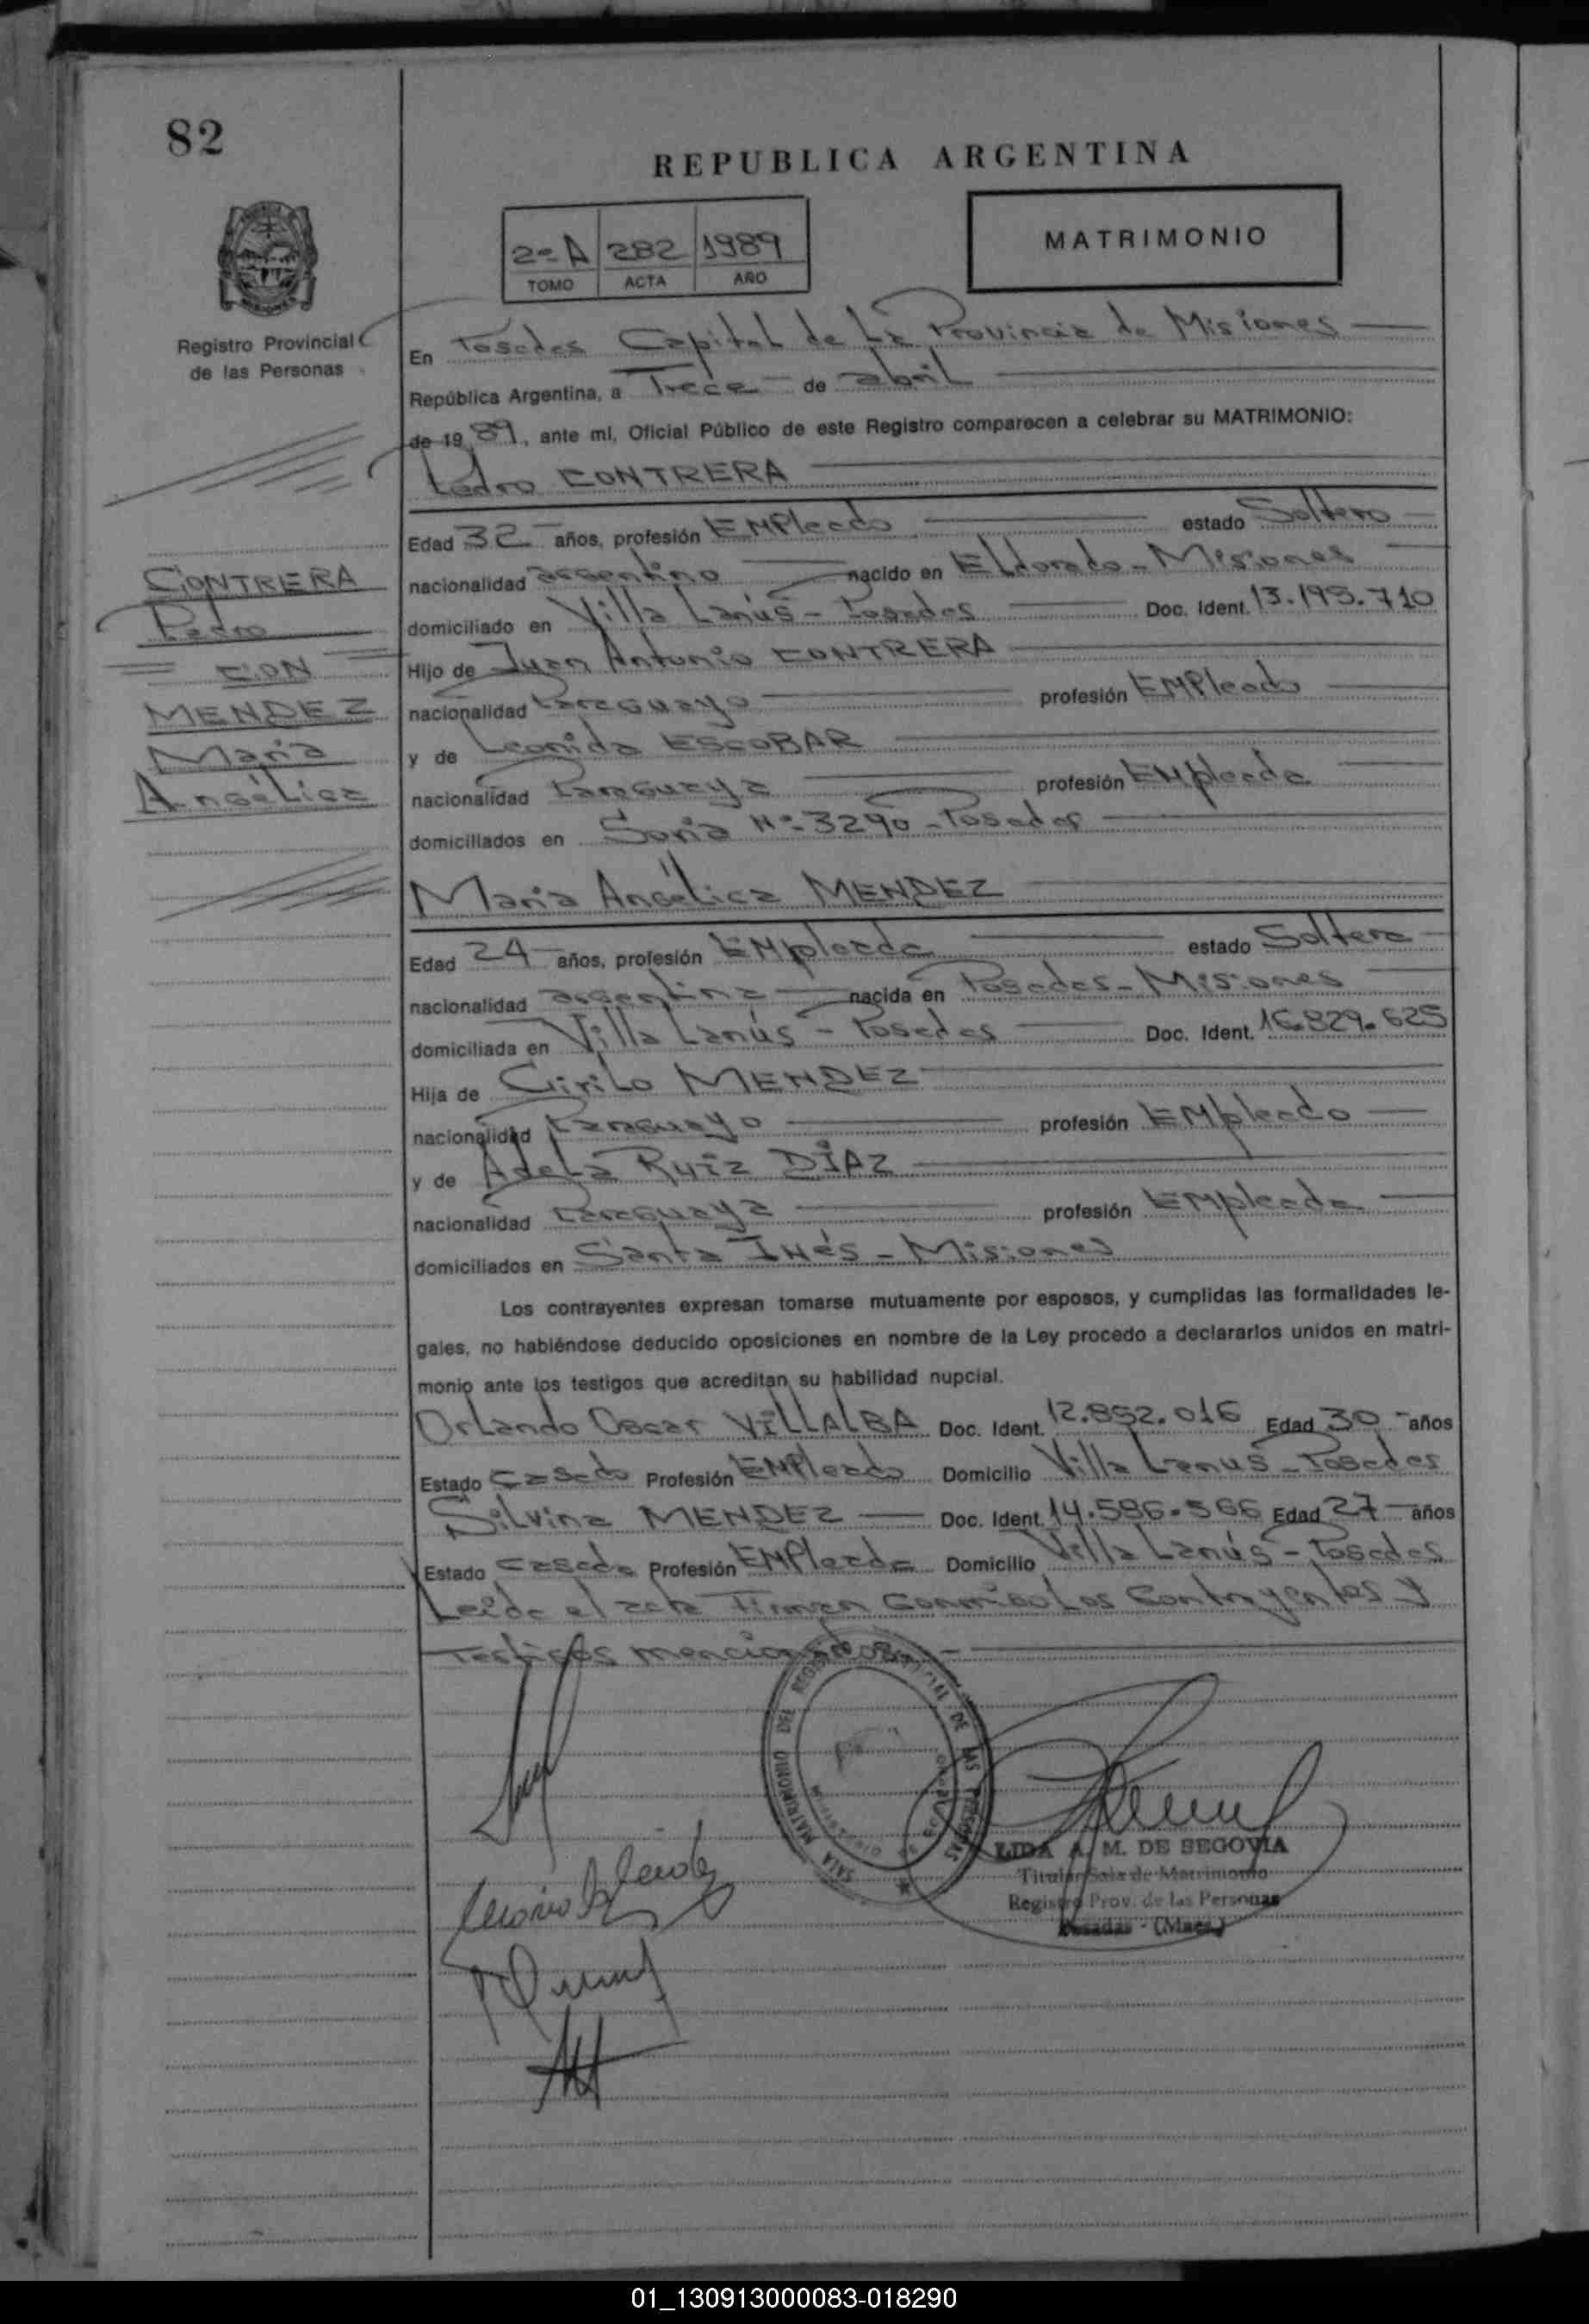 82
REPUBLICA ARGENTINA
2º A 282 1989
TOMO ACTA AÑO
MATRIMONIO
Registro Provincial
de las Personas
En Posadas Capital de La Provincia de Misiones
República Argentina, a Trece de abril
de 19 89, ante mí, Oficial Público de este Registro comparecen a celebrar su MATRIMONIO:
Pedro CONTRERA
Edad 32 años, profesión EMPleado estado Soltero
nacionalidad argentino nacido en Eldorado - Misiones
domiciliado en Villa Lanús - Posadas Doc. Ident. 13.195.710
Hijo de Juan Antonio CONTRERA
nacionalidad Paraguayo profesión EMPleado
y de Leonida ESCOBAR
nacionalidad Paraguaya profesión EMpleada
domiciliados en Soria Nº 3290 - Posadas
CONTRERA
Pedro
CON
MENDEZ
María
Angélica
María Angélica MENDEZ
Edad 24 años, profesión EMpleada estado Soltera
nacionalidad argentina nacida en Posadas - Misiones
domiciliada en Villa Lanús - Posadas Doc. Ident. 16.829.625
Hija de Cirilo MENDEZ
nacionalidad Paraguayo profesión EMpleado
y de Adela Ruiz DÍAZ
nacionalidad Paraguaya profesión EMpleada
domiciliados en Santa Inés - Misiones
Los contrayentes expresan tomarse mutuamente por esposos, y cumplidas las formalidades le-
gales, no habiéndose deducido oposiciones en nombre de la Ley procedo a declararlos unidos en matri-
monio ante los testigos que acreditan su habilidad nupcial.
Orlando Oscar VILLALBA Doc. Ident. 12.852.016 Edad 30 años
Estado Casado Profesión EMPleado Domicilio Villa Lanus - Posadas
Silvina MENDEZ Doc. Ident. 14.586.566 Edad 27 años
Estado casada Profesión EMPleada Domicilio Villa Lanús - Posadas
Leída el acta Firman Conmigo Los Contrayentes y
Testigos mencionados
SALA MATRIMONIO DEL REGISTRO PROVINCIAL DE LAS PERSONAS
LIDA A. M. DE SEGOVIA
Titular Sala de Matrimonio
Registro Prov. de las Personas
Posadas - (Mnes.)
01_130913000083-018290